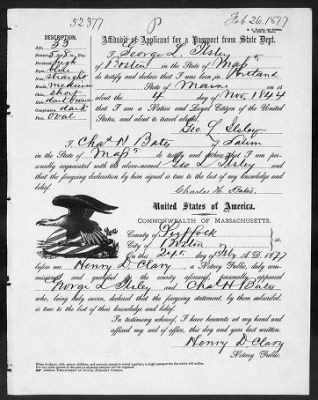 52377
P
Feb 26. 1877
Affidavit of Applicant for a Passport from State Dept.
DESCRIPTION.
Age, 33
high
blue
straight
medium
short
dark brown
dark
oval
I, George L. Ilsley
of Boston in the State of Mass
do testify and declare that I was born in Portland
State of Maine on or
about the 4 day of Nov. 1844
that I am a Native and Loyal Citizen of the United
States, and about to travel abroad.
Geo. L. Ilsley
I, Chas H Bates of Salem
in the State of Mass to testify and that I am per-
sonally acquainted with the above-named Geo L Ilsley
and that the foregoing declaration by him signed is true to the best of my knowledge and
belief.
Charles H. Bates.
United States of America.
COMMONWEALTH OF MASSACHUSETTS.
County of Suffolk
City of Boston
On this 24th day of Feby A.D. 1877
before me Henry D. Clary a Notary Public, duly com-
missioned and personally appeared
George L Ilsley and Chas H Bates
who, being duly sworn, declared that the foregoing statement, by them subscribed,
is true to the best of their knowledge and belief.
In testimony whereof, I have hereunto set my hand and
affixed my seal of office, this day and year last written.
Henry D. Clary
Notary Public.